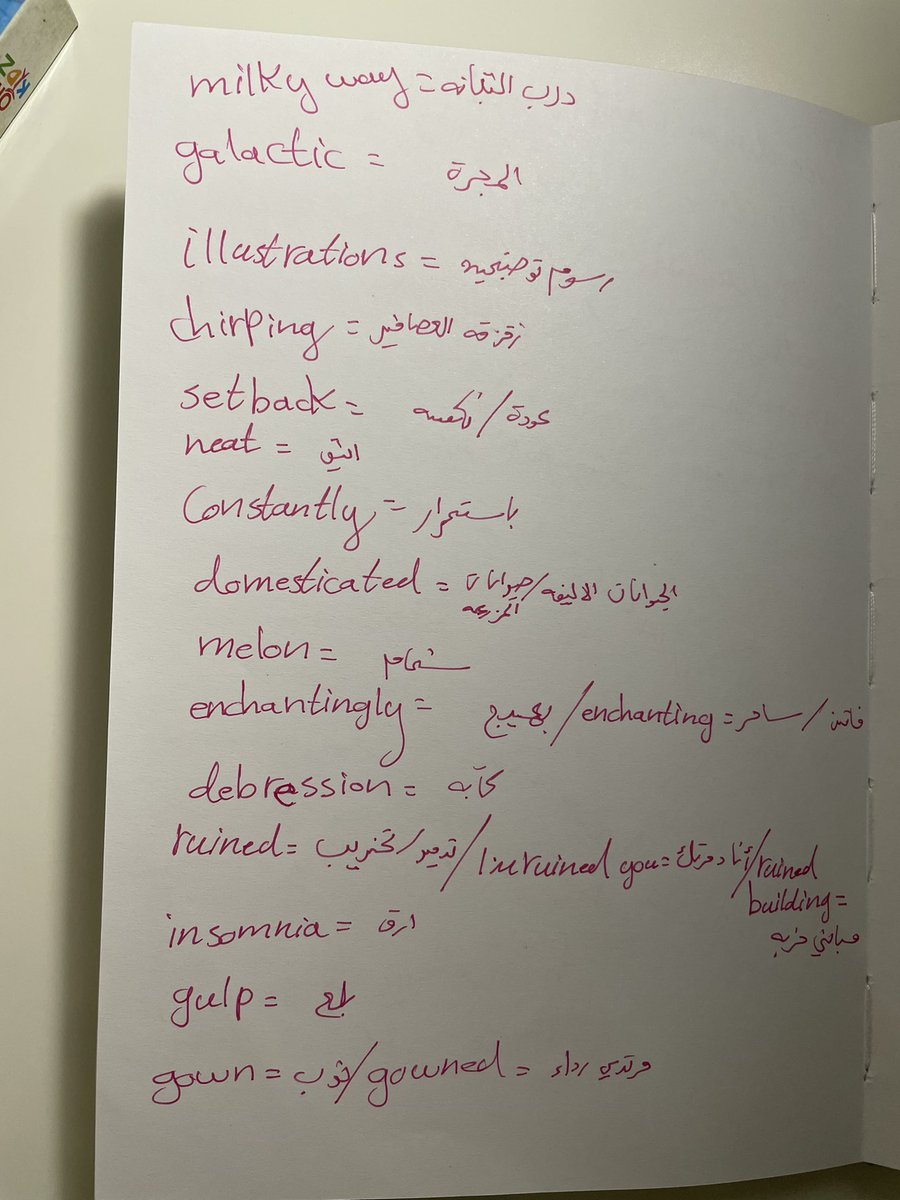 milky way = درب التبانه
galactic = المجرة
illustrations = رسوم توضيحيه
chirping = زقزقه العصافير
setback = عودة / نكسه
neat = انيق
Constantly = باستمرار
domesticated = الحيوانات الاليفه / حيوانات المزرعه
melon = شمام
enchantingly = بهيج / enchanting = ساحر / فاتن
debression = كآبه
ruined = تدمير / تخريب / I ruined you = أنا دمرتك / ruined
building =
مباني خربه
insomnia = ارق
gulp = بلع
gown = ثوب / gowned = مرتدي رداء